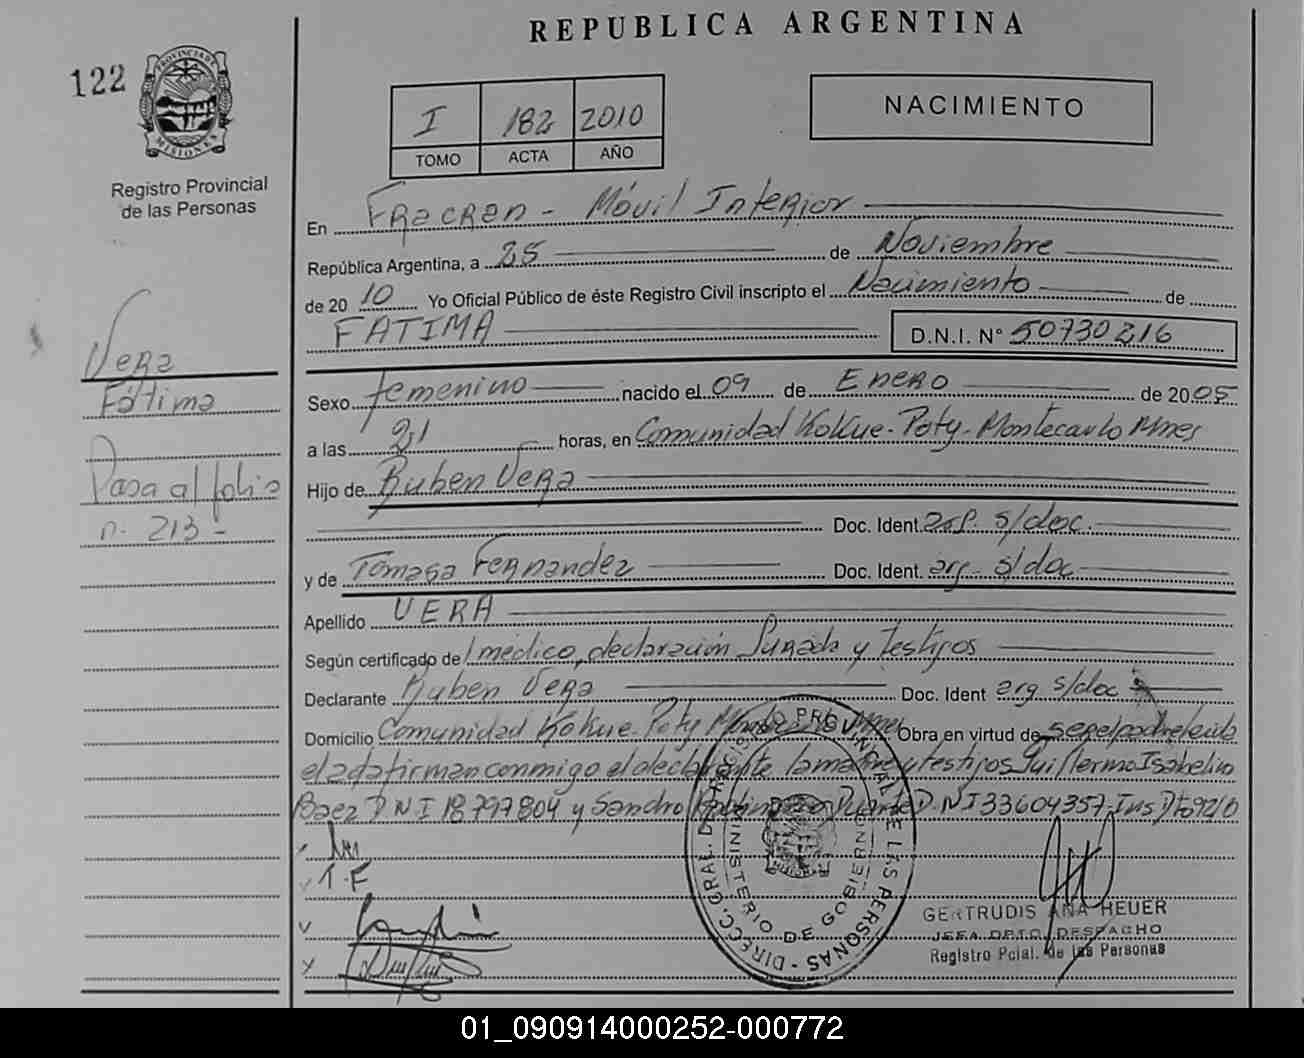 REPUBLICA ARGENTINA
122
PROVINCIA DE
MISIONES
Registro Provincial
de las Personas
I 182 2010
TOMO ACTA AÑO
NACIMIENTO
En Fracran - Móvil Interior
República Argentina, a 25 de Noviembre
de 2010 Yo Oficial Público de éste Registro Civil inscripto el Nacimiento de
FATIMA D.N.I. N° 50730216
Sexo femenino nacido el 09 de Enero de 2005
a las 21 horas, en Comunidad Kokue-Poty-Montecarlo Mnes
Hijo de Ruben Vera
Doc. Ident. arg. s/doc.
y de Tomasa Fernandez Doc. Ident. arg. s/doc
Apellido VERA
Según certificado de médico, declaración Jurada y testigos
Declarante Ruben Vera Doc. Ident arg s/doc
Domicilio Comunidad Kokue-Poty Mnes Obra en virtud de ser el padre leida
el acta firman conmigo el declarante la madre y testigos Guillermo Isabelino
Baez D.N.I 18797804 y Sandro Duarte D.NI 33604357
T.F
Vera
Fátima
Pasa al folio
n. 213 -
DIRECC. GRAL. DEL REGISTRO PROVINCIAL DE LAS PERSONAS
MINISTERIO DE GOBIERNO
GERTRUDIS ANA HEUER
JEFA DPTO. DESPACHO
Registro Pcial. de las Personas
01_090914000252-000772